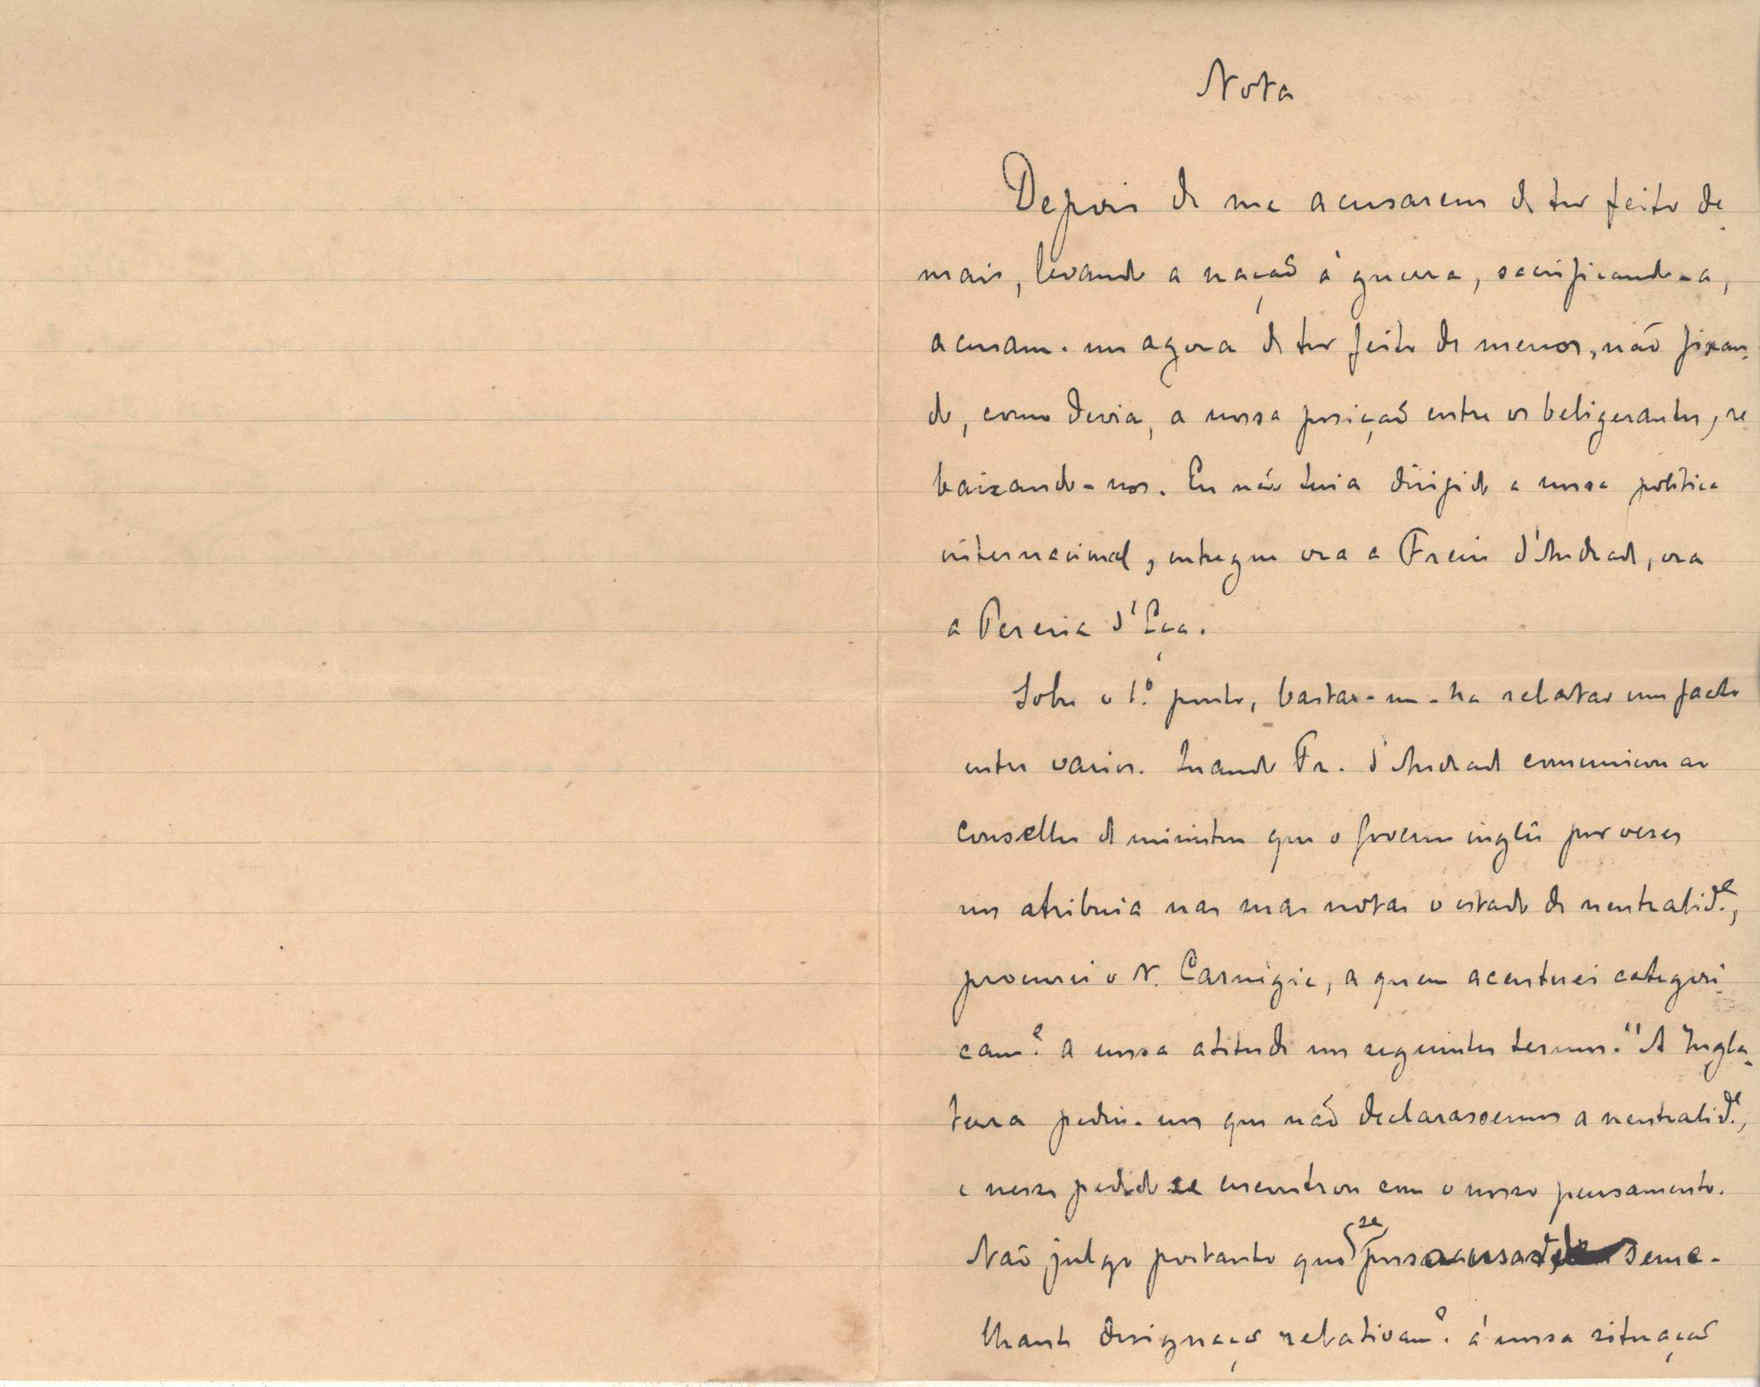 Nota
Depois de me acusarem de ter feito de
mais, levando a nação á guerra, sacrificando-a,
acusam-me agora de ter feito de menos, não fixan-
do, como devia, a nossa posição entre os beligerantes, re
baixando-nos. Eu não teria dirigido a nossa politica
internacional, entregue ora a Freire d'Andrade, ora
a Pereira d'Eça.
Sobre o 1.º ponto, bastar-me-ha relatar um facto
entre varios. Quando Fr. d'Andrade comunicou ao
conselho de ministros que o Governo inglês por vezes
nos atribuia nas suas notas o estado de neutralid.e,
procurei o N. Carnegie, a quem acentuei categori-
cam.e a nossa atitude nos seguintes termos. "A Ingla-
terra pediu-nos que não declarassemos a neutralid.e,
e nesse pedido se encontrou com o nosso pensamento.
Não julgo portanto que se possa usar de seme-
lhante designação relativam.e á nossa situação